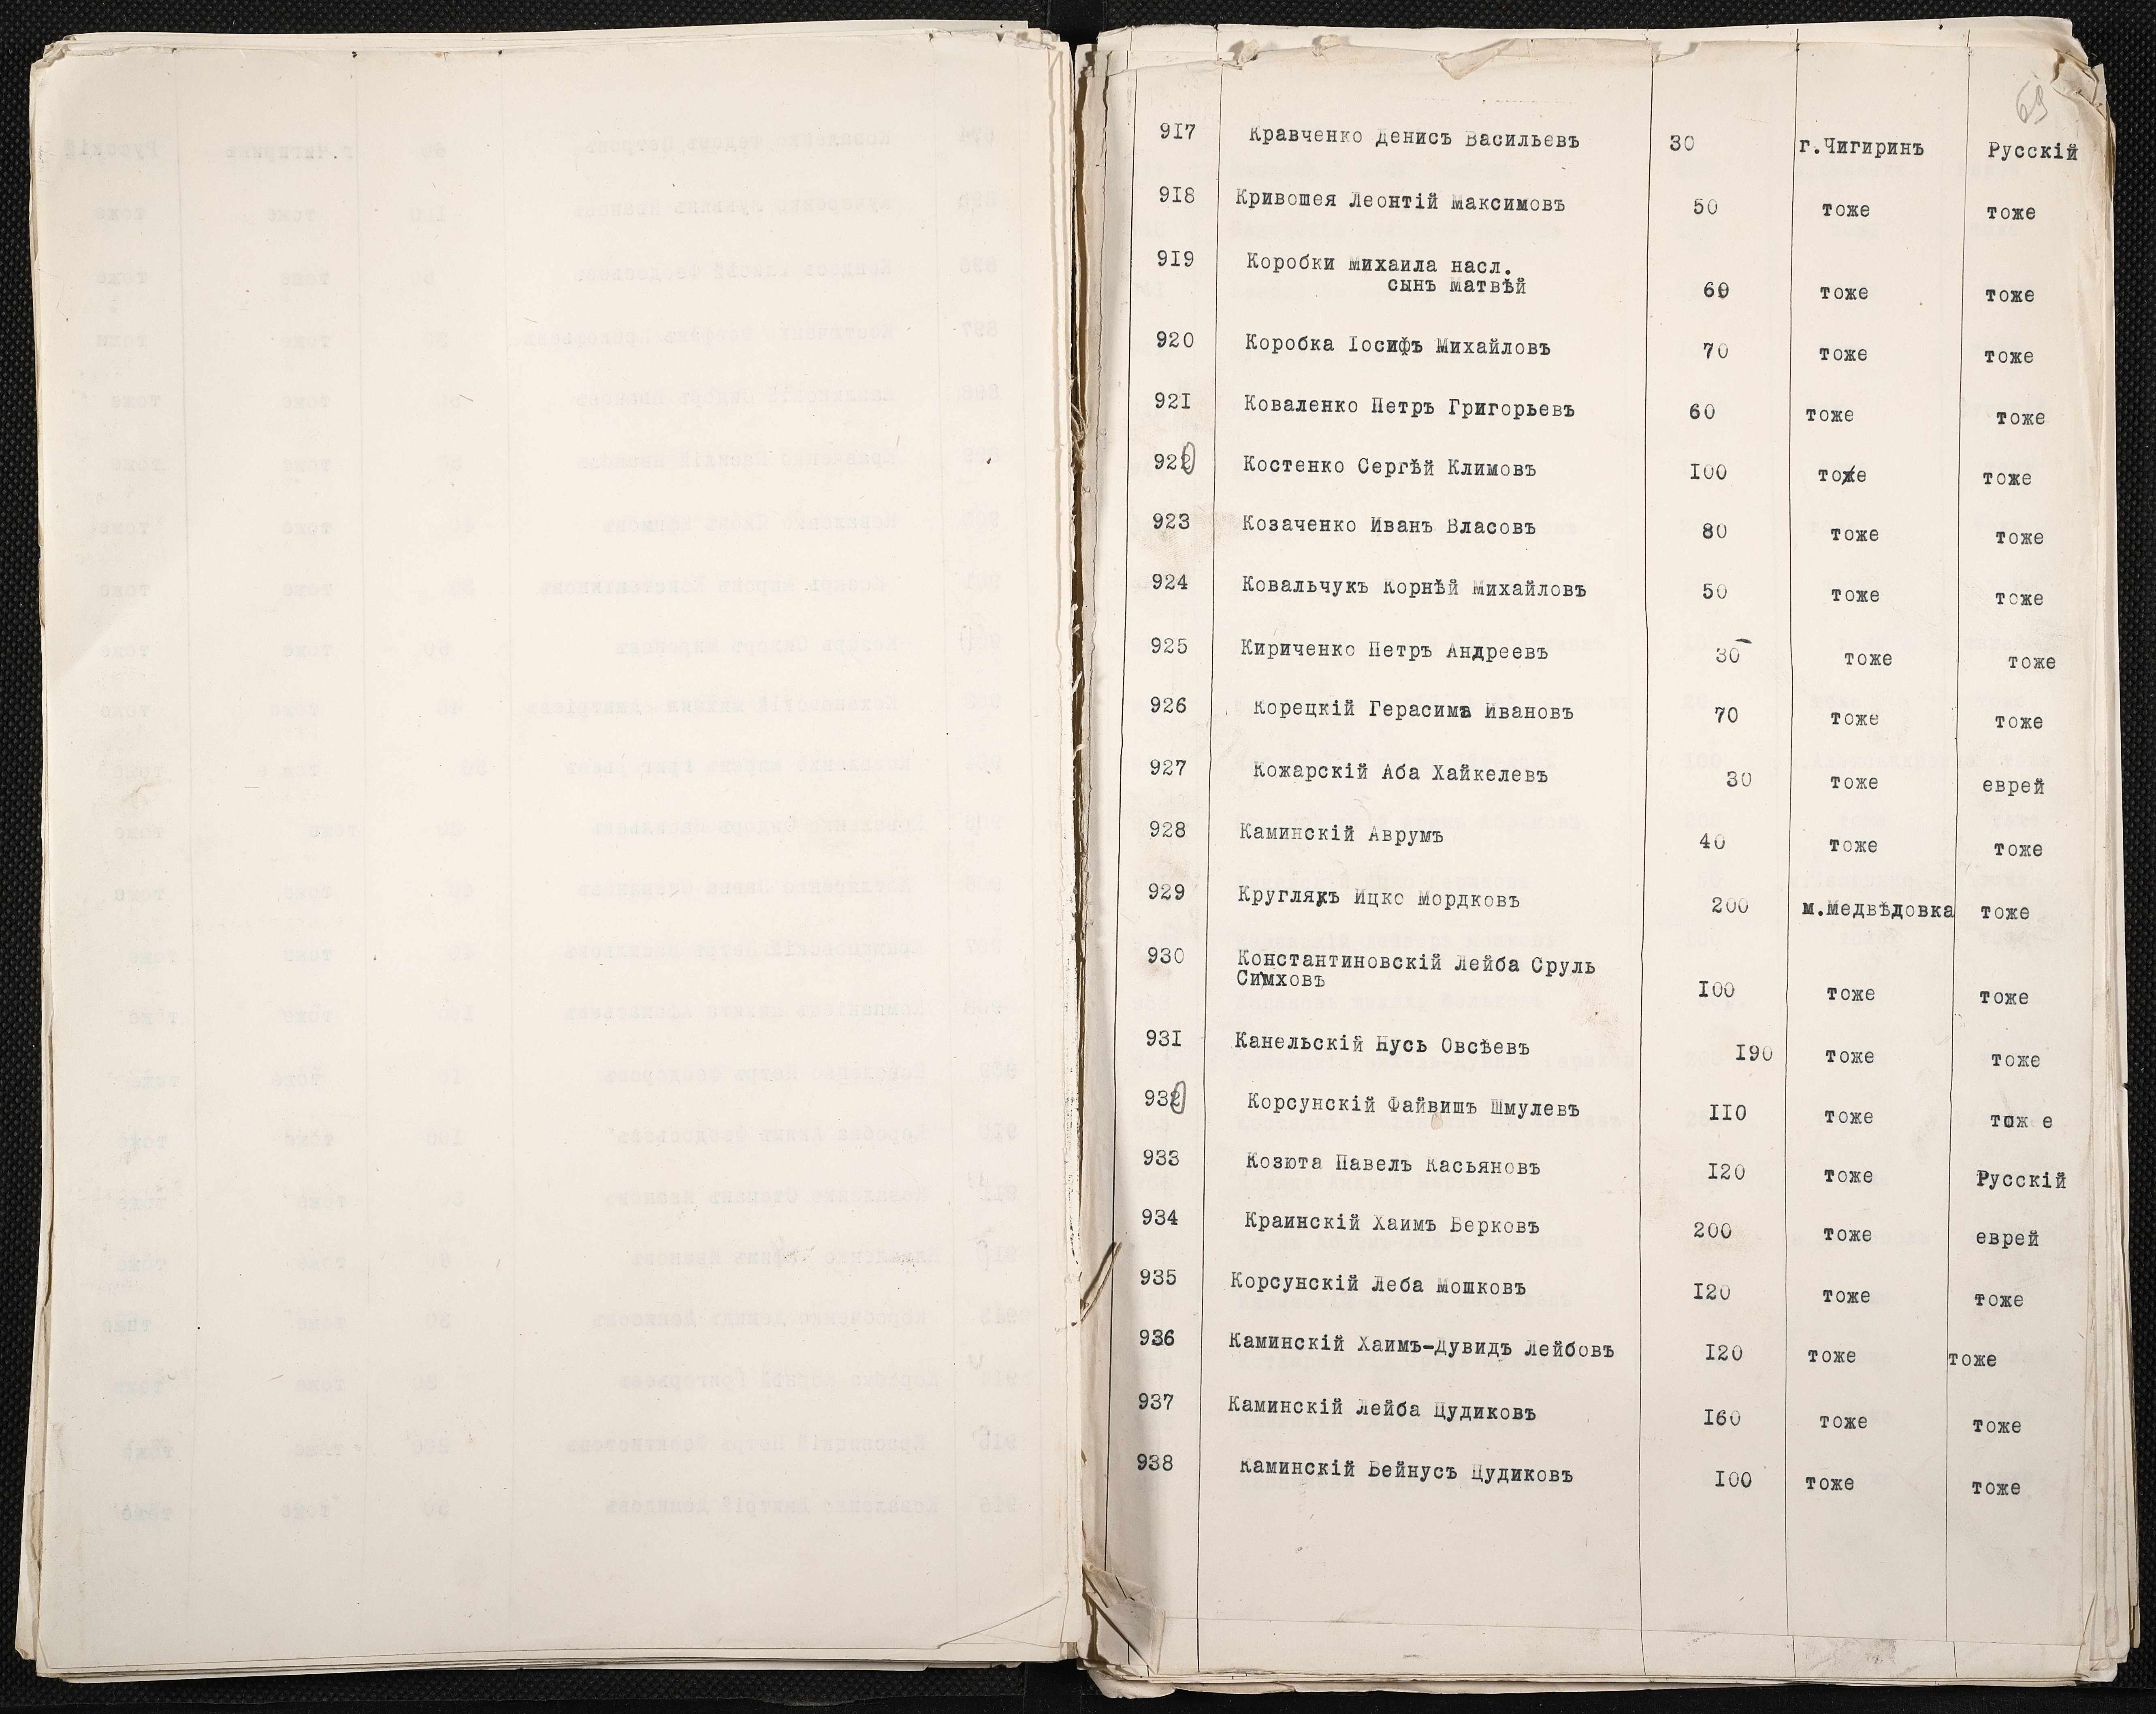 69
917 Кравченко Денисъ Васильевъ 30 г.Чигиринъ Русскій
918 Кривошея Леонтій Максимовъ 50 тоже тоже
919 Коробки Михаила насл.
сынъ Матвѣй 60 тоже тоже
920 Коробка Іосифъ Михайловъ 70 тоже тоже
921 Коваленко Петръ Григорьевъ 60 тоже тоже
922 Костенко Сергѣй Климовъ 100 тоже тоже
923 Козаченко Иванъ Власовъ 80 тоже тоже
924 Ковальчукъ Корнѣй Михайловъ 50 тоже тоже
925 Кириченко Петръ Андреевъ 30 тоже тоже
926 Корецкій Герасимъ Ивановъ 70 тоже тоже
927 Кожарскій Аба Хайкелевъ 30 тоже еврей
928 Каминскій Аврумъ 40 тоже тоже
929 Круглякъ Ицко Мордковъ 200 м.Медвѣдовка тоже
930 Константиновскій Лейба Сруль
Симховъ 100 тоже тоже
931 Канельскій Нусь Овсѣевъ 190 тоже тоже
932 Корсунскій Файвишъ Шмулевъ 110 тоже тоже
933 Козюта Павелъ Касьяновъ 120 тоже Русскій
934 Краинскій Хаимъ Берковъ 200 тоже еврей
935 Корсунскій Леба Мошковъ 120 тоже тоже
936 Каминскій Хаимъ-Дувидъ Лейбовъ 120 тоже тоже
937 Каминскій Лейба Цудиковъ 160 тоже тоже
938 Каминскій Бейнусъ Цудиковъ 100 тоже тоже